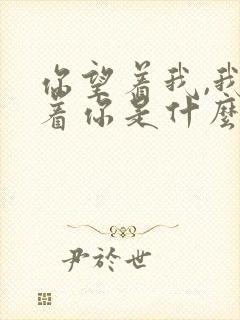 你望着我,我
着你是什麽
尹於世